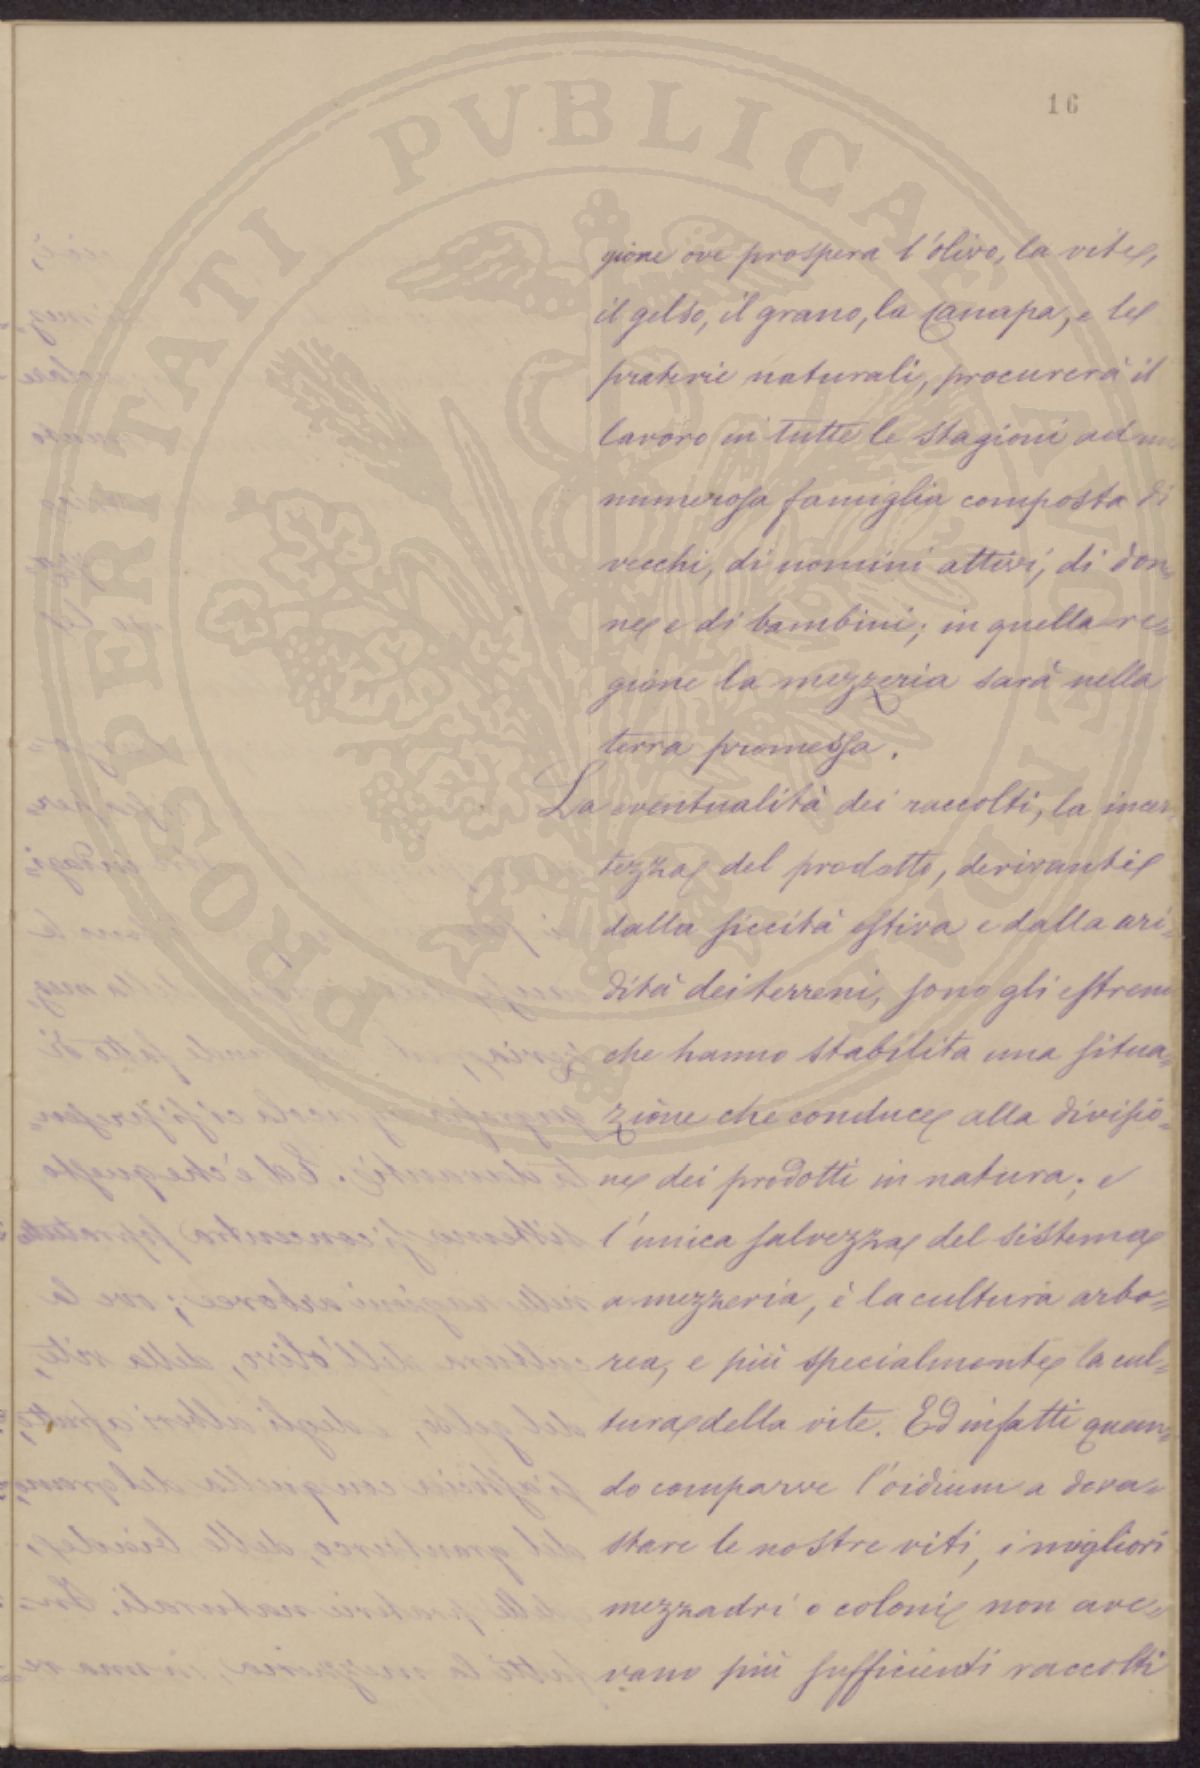 PROSPERITATI PVBLICAE
16
gione ove prospera l'olivo, la vite,
il gelso, il grano, la canapa, e le
praterie naturali, procurerà il
lavoro in tutte le stagioni ad
numerosa famiglia composta di
vecchi, di uomini attivi, di don=
ne e di bambini; in quella re=
gione la mezzeria sarà nella
terra promessa.
La eventualità dei raccolti, la incer=
tezza del prodotto, derivanti
dalla siccità estiva e dalla ari=
dità dei terreni, sono gli estremi
che hanno stabilita una situa=
zione che conduce alla divisio=
ne dei prodotti in natura; e
l'unica salvezza del sistema
a mezzeria, è la cultura arbo=
rea, e più specialmente la cul=
tura della vite. Ed infatti quan=
do comparve l'oidium a deva=
stare le nostre viti, i migliori
mezzadri o coloni non ave=
vano più sufficienti raccolti